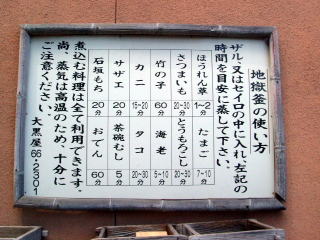 地獄釜の使い方
ザル、又はセイロの中に入れ、左記の
時間を目安に蒸して下さい。
ほうれん草 1~2 たまご 7~10
さつまいも 20~30 とうもろこし 20~30
竹の子 60 海老 5~10
カニ 15~20 タコ 20~30
サザエ 20 茶碗むし 5
石垣もち 20分 おでん 60分
煮込む料理は全て利用できます。
尚、蒸気は高温のため、十分に
ご注意ください。 大黒屋 66-2301